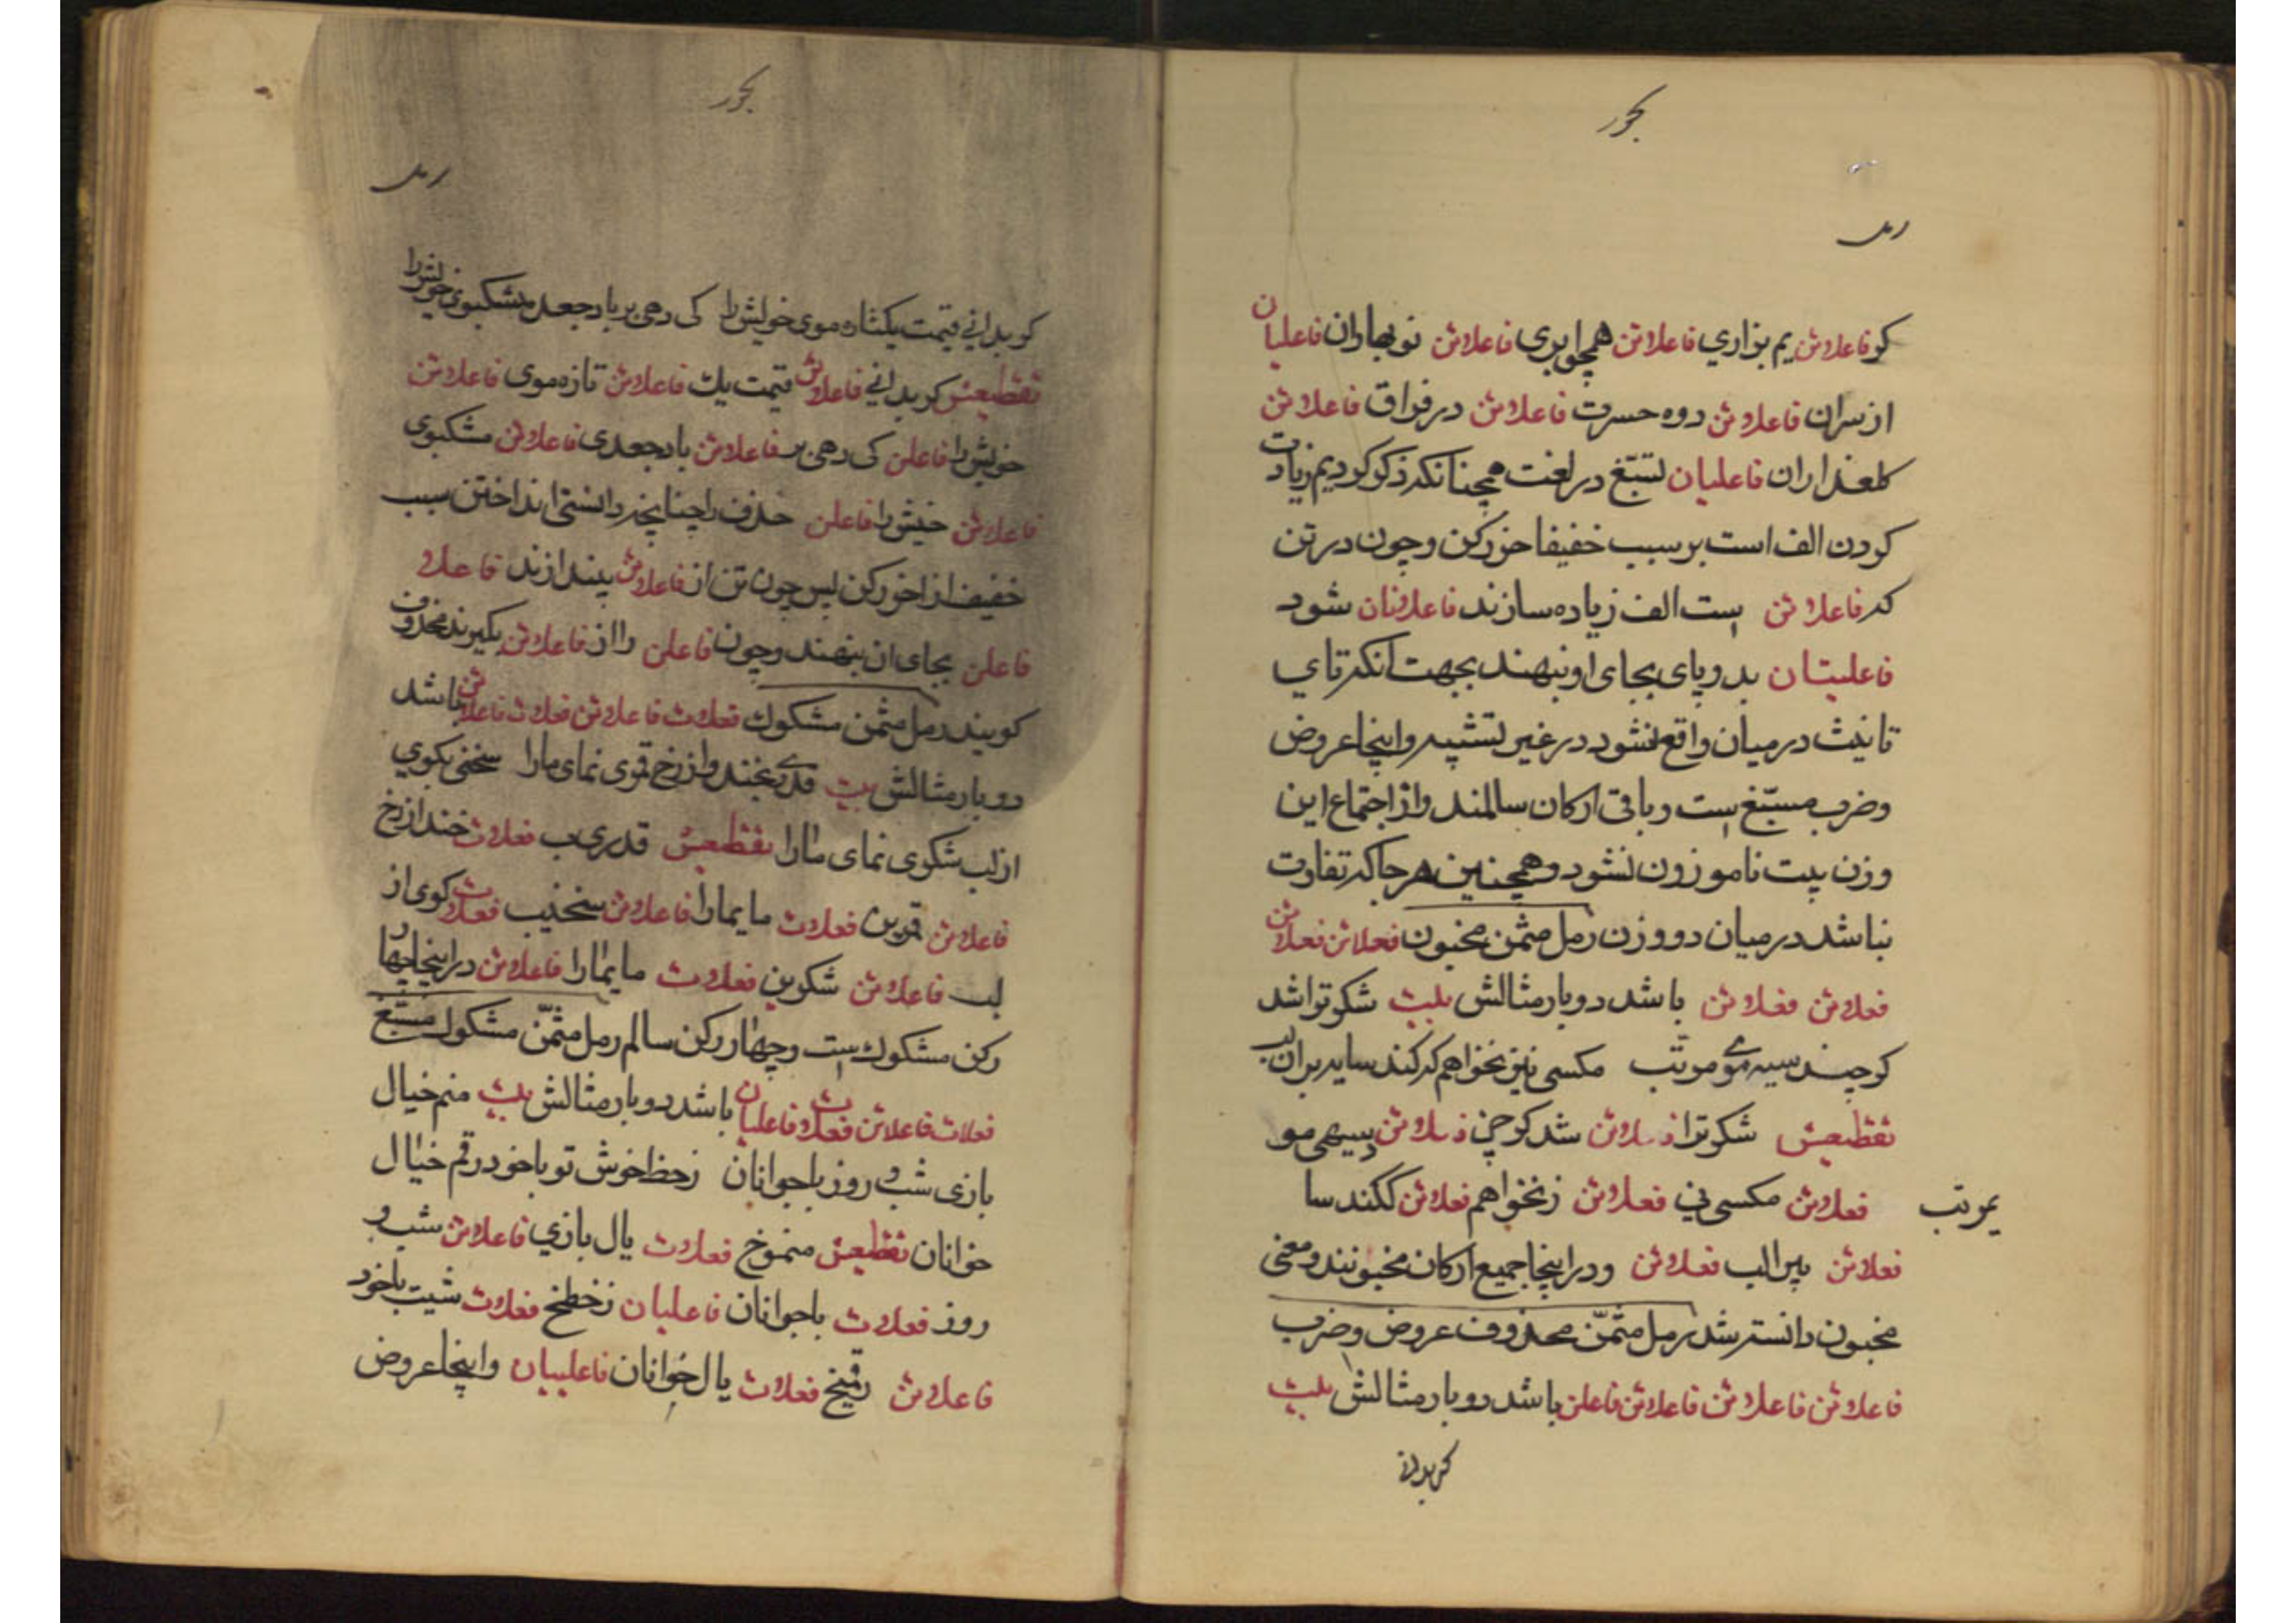 بحور
رمل
کو فاعلاتن یم بزاری فاعلاتن همچو ابری فاعلاتن نو بهاران فاعلیان
از سران فاعلاتن دوه حسرت فاعلاتن در فراق فاعلاتن
کلعذاران فاعلیان تسبّغ در لغت همچنانکه ذکر کردیم زیادت
کردن الف است بر سبب خفیف اخر رکن و چون در تن
که فاعلاتن است الف زیاده سازند فاعلاتان شود
فاعلیتان بدو یای بجای او بنهند بجهت آنکه تای
تانیث در میان واقع نشود در غیر تشبیه و اینجا عروض
و ضرب مسبّغ است و باقی ارکان سالمند و از اجتماع این
وزن بیت ناموزون نشود و همچنین هر جا که تفاوت
نباشد در میان دو وزن رمل مثمن مخبون فعلاتن فعلاتن
فعلاتن فعلاتن باشد دوبار مثالش بیت شکر ترا شد
کو چند سیه موی مرتب مکسی نیز نخواهم که کند سایه بران لب
تقطیعش شکر ترا فعلاتن شد کو چن فعلاتن سیهی مو
یمرتب
فعلاتن مکسی نی فعلاتن زنخواهم فعلاتن ککند سا
فعلاتن یبرالب فعلاتن و در اینجا جمیع ارکان مخبونند و معنی
مخبون دانسته شد رمل مثمّن محذوف عروض و ضرب
فاعلاتن فاعلاتن فاعلاتن فاعلن باشد دوبار مثالش بیت
کر بدانی
بحور
رمل
کر بدانی قیمت یکتاره موی خویش را کی دهی بر باد جعد مشکبوی خویش را
تقطیعش کر بدانی فاعلاتن قیمت یک فاعلاتن تازه موی فاعلاتن
خویش را فاعلن کی دهی بر فاعلاتن باد جعدی فاعلاتن مشکبوی
فاعلاتن خیش را فاعلن حذف را چنانچه دانستی انداختن سبب
خفیف از اخر رکن پس چون تن از فاعلاتن بیندازند فاعلا
فاعلن بجای ان بنهند و چون فاعلن را از فاعلاتن بگیرند محذوف
کویند رمل مثمن مشکول فعلات فاعلاتن فعلات فاعلاتن باشد
دو بار مثالش بیت قدری بخند و از رخ قمری نمای مارا سخنی بکوی
از لب شکوی نمای مارا تقطیعش قدری ب فعلات خند از رخ
فاعلاتن قمرین فعلات مایمارا فاعلاتن سخنیب فعلات کوی از
لب فاعلاتن شکوین فعلات مایمارا فاعلاتن در اینجا چهار
رکن مشکول است و چهار رکن سالم رمل مثمّن مشکول مسبّغ
فعلات فاعلاتن فعلات فاعلیان باشد دوبار مثالش بیت منم خیال
بازی شب و روز با جوانان زحظ خوش تو باخود رقم خیال
خوانان تقطیعش منموخ فعلات یال بازی فاعلاتن شب و
روز فعلات باجوانان فاعلیان زخطخ فعلات شیت باخود
فاعلاتن رقمیخ فعلات یال خوانان فاعلییان و اینجا عروض